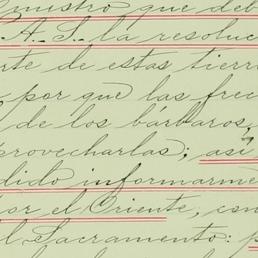 nuestro que deb
A. S. la resoluc
rte de estas tierr
, por que las frec
de los bárbaros,
provecharlas; así
dido informarme
or el Oriente, con
l Sacramento: p